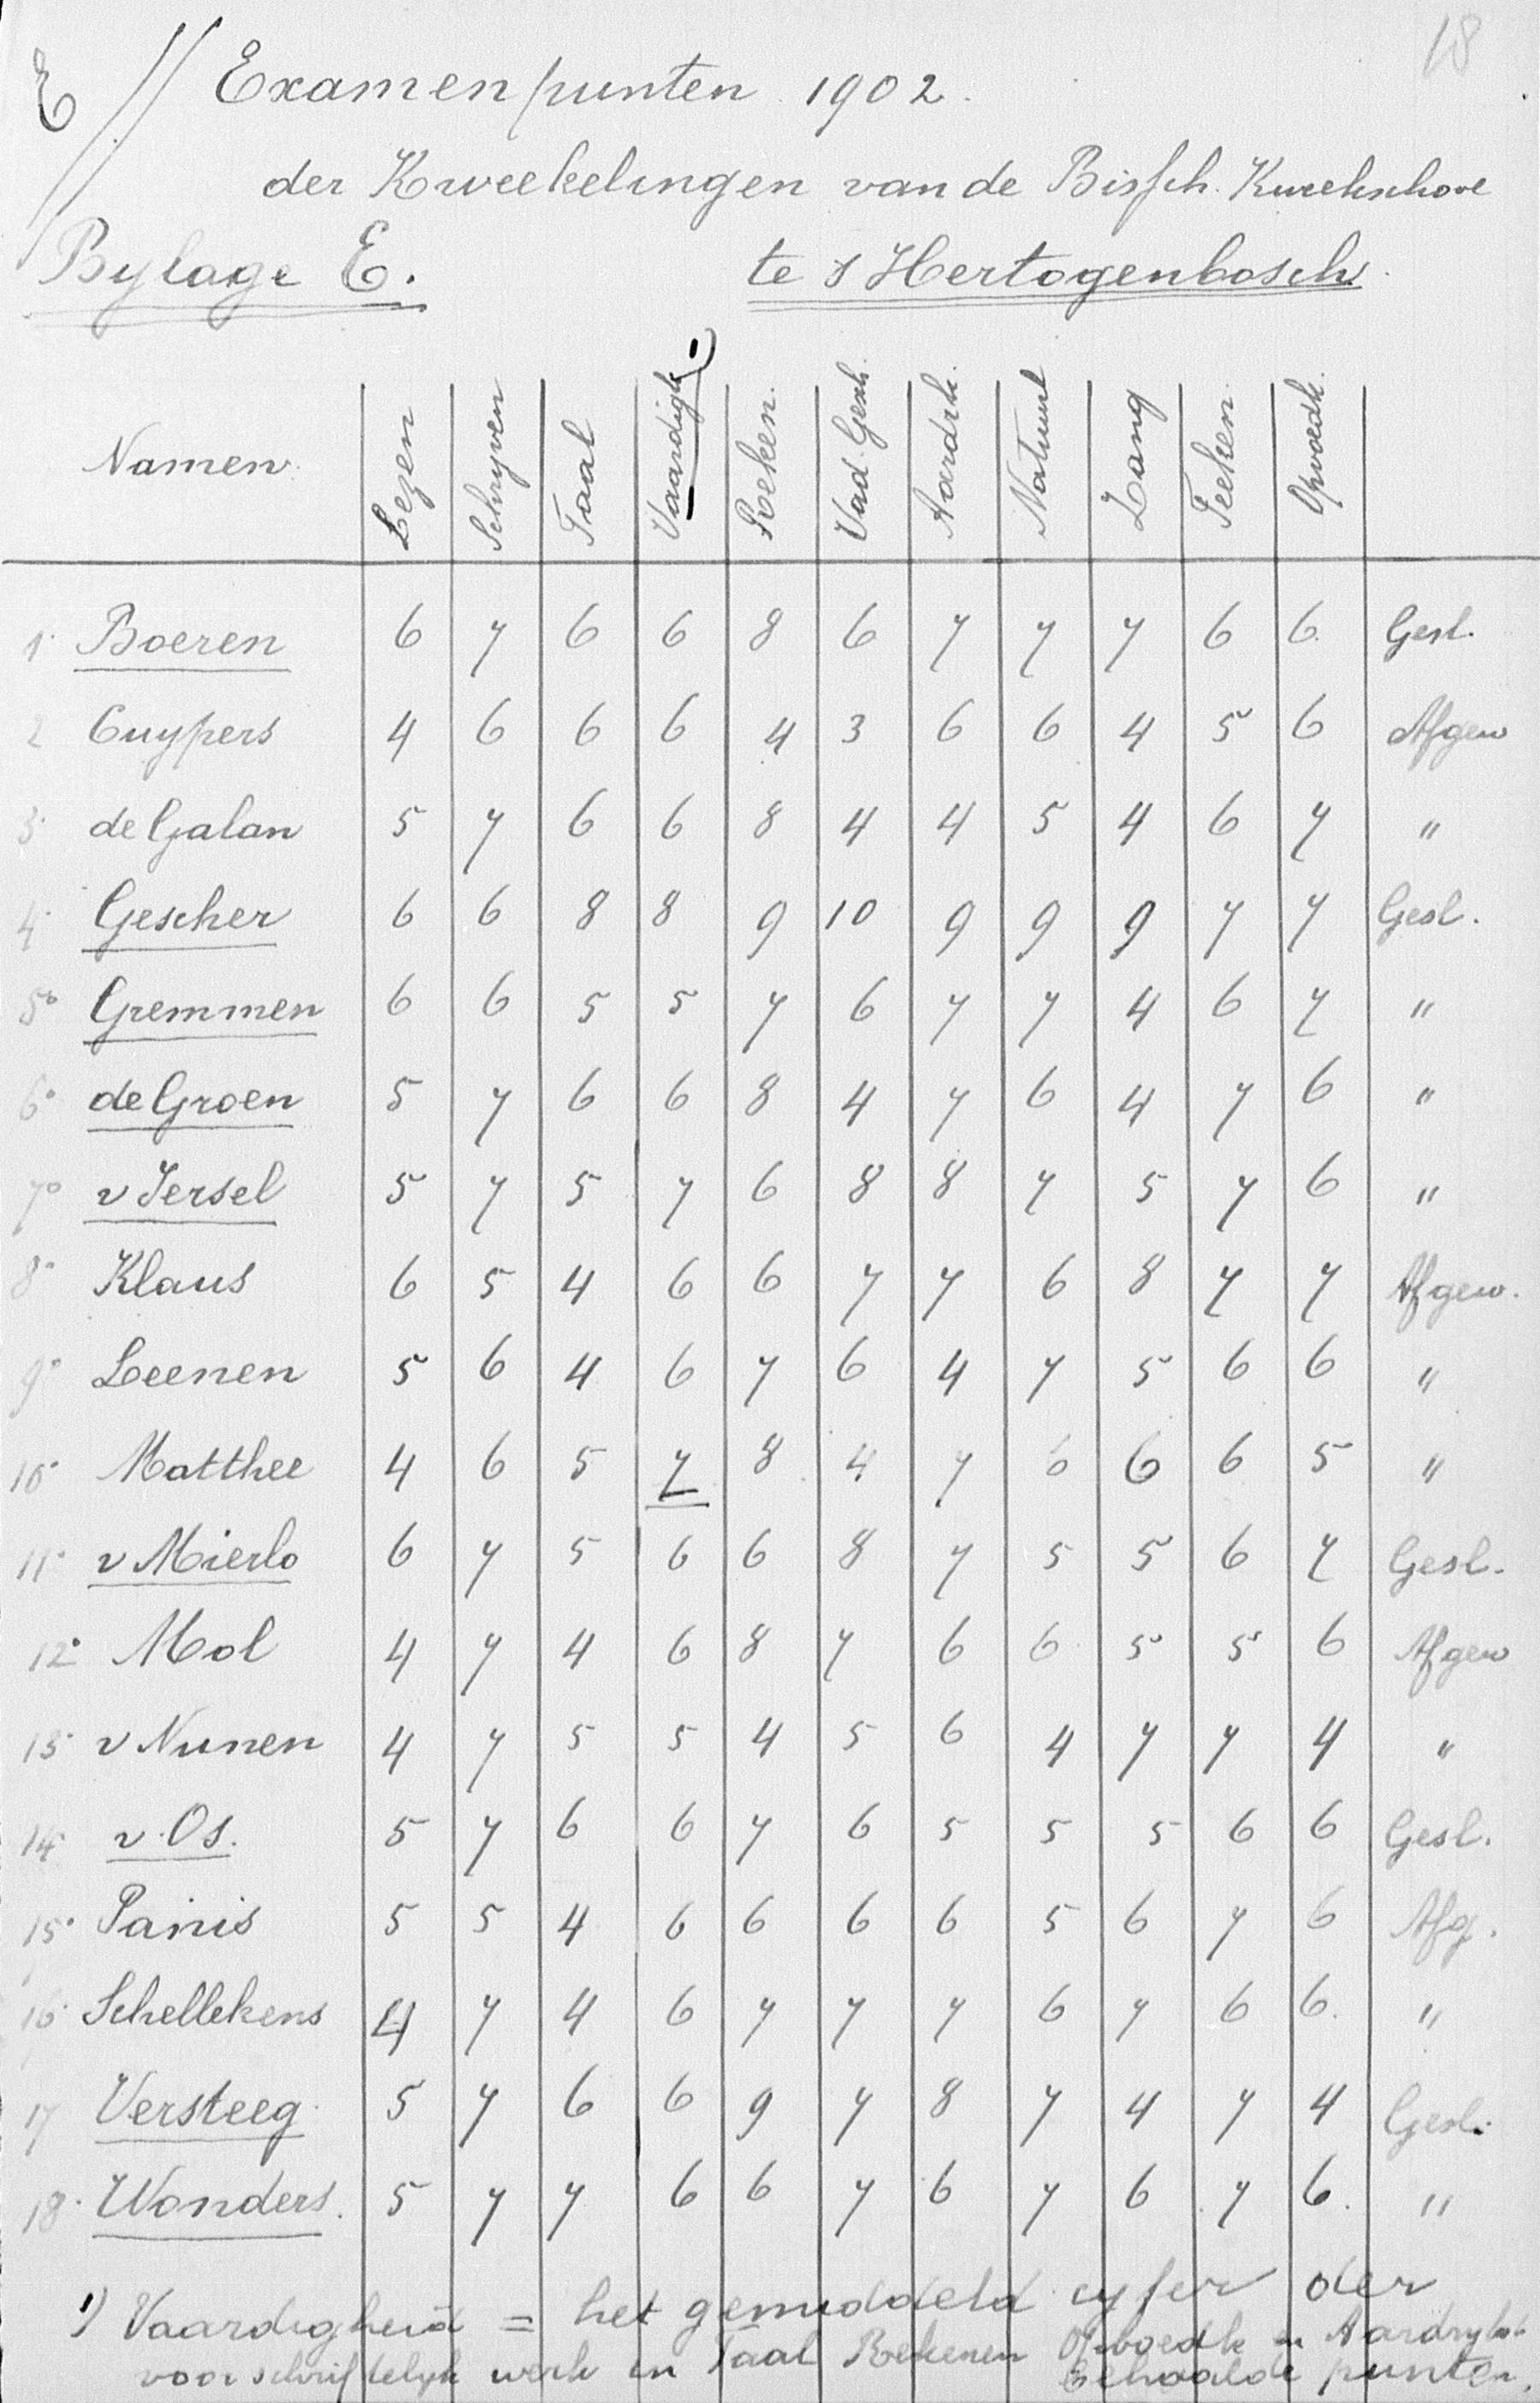 18
E // Examenpunten 1902.
der Kweekelingen van de Bissch. Kweekschool
Bylage E. te s Hertogenbosch.
Namen. Lezen Schryven Taal Vaardigh. 1) Reken. Vad. Gesch. Aardrk. Natuurk Zang Teeken. Opvoedk.
1. Boeren 6 7 6 6 8 6 7 7 7 6 6. Gesl.
2 Cuypers 4 6 6 6 4 3 6 6 4 5 6 Afgew
3. de Galan 5 7 6 6 8 4 4 5 4 6 7 "
4. Gescher 6 6 8 8 9 10 9 9 9 7 7 Gesl.
5° Gremmen 6 6 5 5 7 6 7 7 4 6 7 "
6° de Groen 5 7 6 6 8 4 7 6 4 7 6 "
7° v Iersel 5 7 5 7 6 8 8 7 5 7 6 "
8° Klaus 6 5 4 6 6 7 7 6 8 7 7 Afgew.
9° Leenen 5 6 4 6 7 6 4 7 5 6 6 "
10° Matthee 4 6 5 7 8 4 7 6 6 6 5 "
11° v Mierlo 6 7 5 6 6 8 7 5 5 6 7 Gesl.
12° Mol 4 7 4 6 8 7 6 6 5 5 6 Afgew
13. v Nunen 4 7 5 5 4 5 6 4 7 7 4 "
14. v. Os. 5 7 6 6 7 6 5 5 5 6 6 Gesl.
15° Panis 5 5 4 6 6 6 6 5 6 7 6 Afg.
16. Schellekens 4 7 4 6 7 7 7 6 7 6 6. "
17 Versteeg. 5 7 6 6 9 7 8 7 4 7 4 Gesl.
18. Wonders. 5 7 7 6 6 7 6 7 6 7 6. "
1) Vaardigheid = het gemiddeld cyfer der
voor schriftelyk werk in Taal Rekenen Opvoedk en Aardrykk.
behaalde punten.